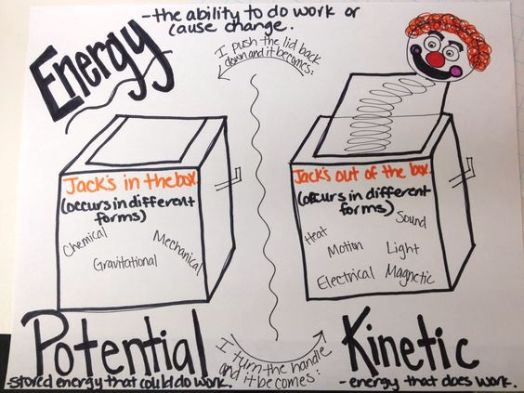 Energy
-the ability to do work or
cause change.
I push the lid back
down and it becomes:
Jack's in the box.
(occurs in different
forms)
Chemical
Mechanical
Gravitational
Jack's out of the box.
(occurs in different
forms)
Sound
Heat
Motion
Light
Electrical
Magnetic
Potential
-stored energy that could do work.
I turn the handle
and it becomes:
Kinetic
-energy that does work.